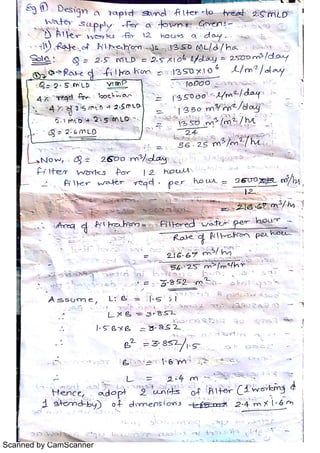 Eg ① Design a rapid sand filter to treat 2.5MLD
water supply for a town. Given:-
i) Filter works for 12 hours a day.
ii) Rate of filtration is 1350 ML/d/ha
Soln: Q = 2.5 MLD = 2.5x10⁶ l/day = 2500 m³/day
Rate of filtration = 1350x10⁶ l/m²/day
10000
Q = 2.5 MLD VIMP
4% reqd for backwash
= 135000 l/m²/day
4% of 2.5MLD + 2.5MLD
= 1350 m³/m²/day
0.1MLD + 2.5 MLD
= 1350 m³/m²/hr
24
Q = 2.6MLD
= 56.25 m³/m²/hr.
Now, Q = 2600 m³/day
Filter works for 12 hours
∴ Filter water reqd. per hour = 2600 m³/hr
12
= 216.67 m³/hr
∴ Area of filtration = Filtered water per hour
Rate of filtration per hour
= 216.67 m³/hr
56.25 m³/m²/hr
= 3.852 m²
Assume, L:B = 1.5:1
∴ LxB = 3.852
∴ 1.5BxB = 3.852
∴ B² = 3.852/1.5
B = 1.6m
∴ L = 2.4 m
Hence, adopt 2 units of filter (1 working &
1 stand-by) of dimensions 2.4 m x 1.6m
Scanned by CamScanner